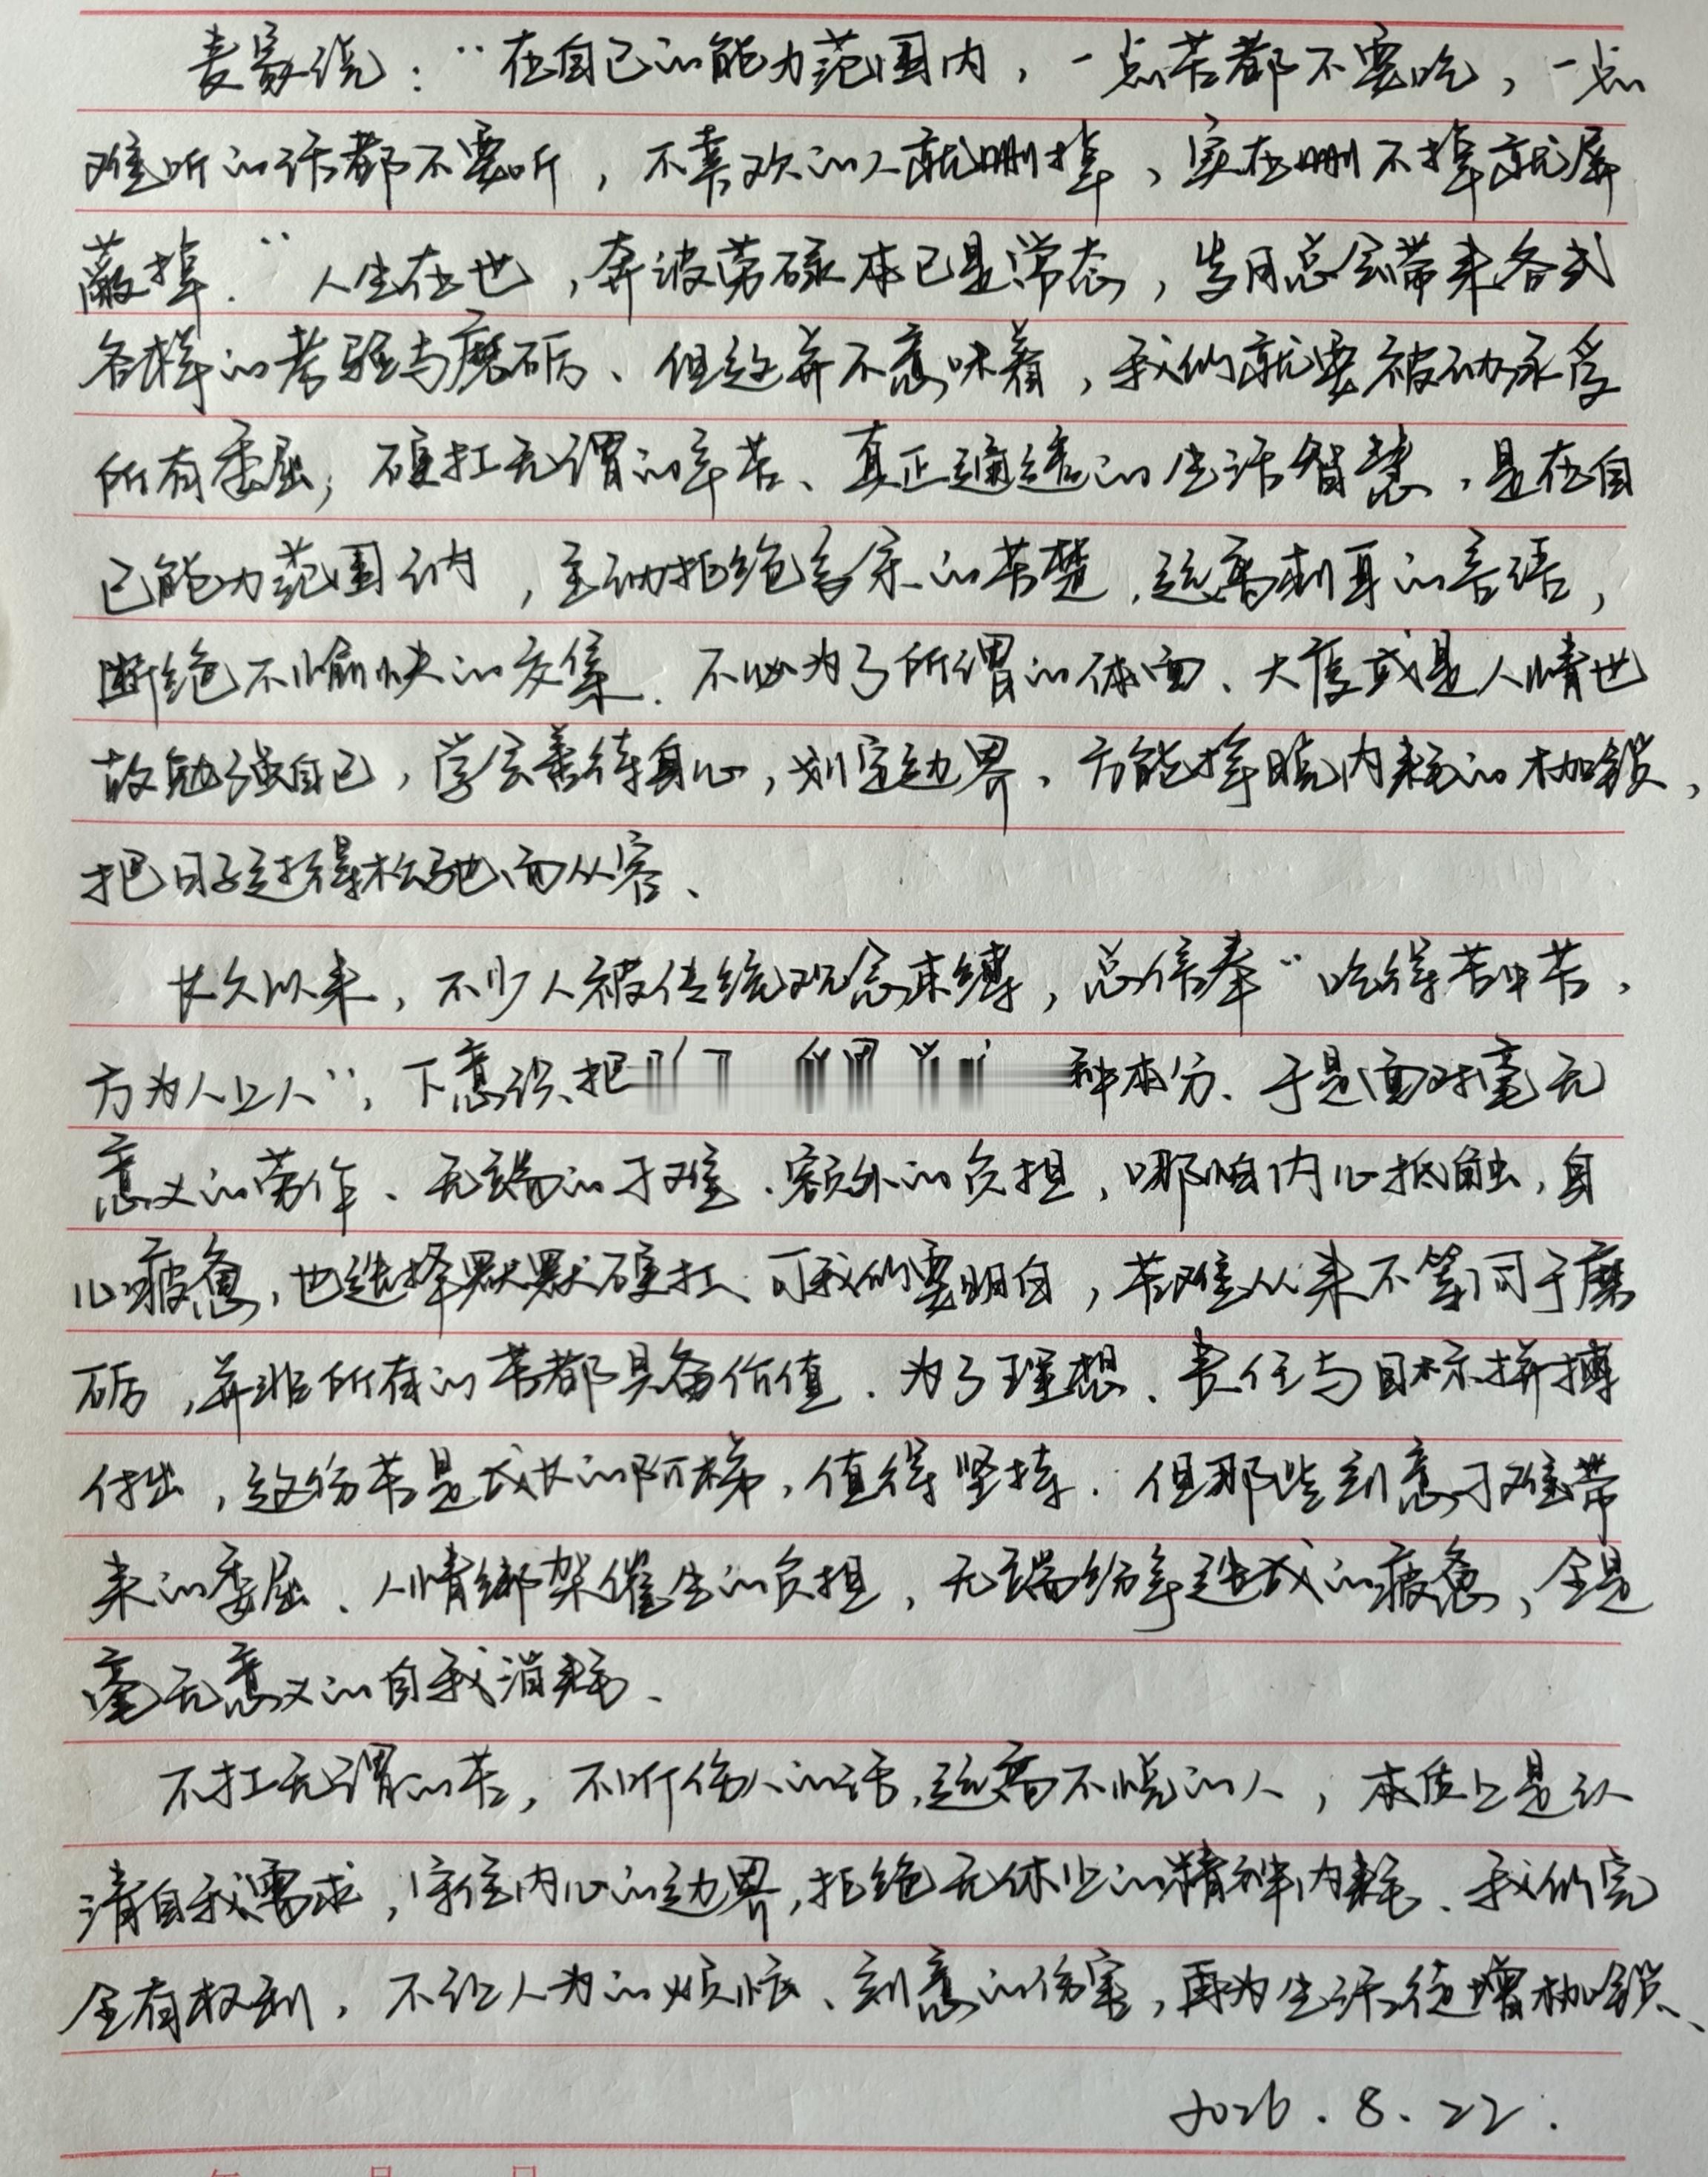 麦家说：“在自己的能力范围内，一点苦都不要吃，一点
难听的话都不要听，不喜欢的人就删掉、实在删不掉就屏
蔽掉.”人生在世，奔波劳碌本已是常态，岁月总会带来各式
各样的考验与磨砺、但这并不意味着，我们就要被动承受
所有委屈，硬扛无谓的辛苦、真正通透的生活智慧，是在自
己能力范围以内，主动拒绝多余的苦楚，远离刺耳的言语，
断绝不愉快的交集. 不必为了所谓的体面、大度或是人情世
故勉强自己，学会善待身心，划定边界、方能挣脱内耗的枷锁，
把日子过得松弛而从容、
长久以来，不少人被传统观念束缚，总信奉“吃得苦中苦，
方为人上人”，下意识把 种本分、于是面对毫无
意义的劳作、无端的刁难、额外的负担，哪怕内心抵触，身
心疲惫，也选择默默硬扛、可我们要明白，苦难从来不等同于磨
砺，并非所有的苦都具备价值. 为了理想、责任与目标拼搏
付出，这份苦是成长的阶梯，值得坚持. 但那些刻意刁难带
来的委屈、人情绑架催生的负担，无端纷争造成的疲惫，全是
毫无意义的自我消耗、
不扛无谓的苦，不听伤人的话，远离不悦的人，本质上是认
清自我需求，守住内心的边界，拒绝无休止的精神内耗、我们完
全有权利，不让人为的烦恼、刻意的伤害，再为生活徒增枷锁、
2026.8.22.
年 月 日